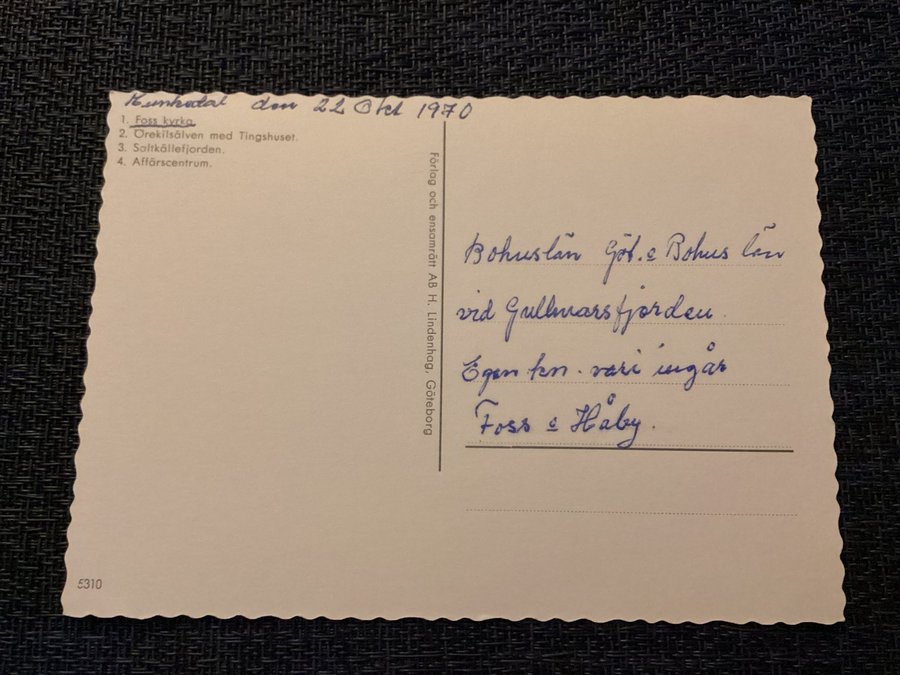 Munkedal den 22 Okt 1970
1. Foss kyrka.
2. Örekilsälven med Tingshuset.
3. Saltkällefjorden.
4. Affärscentrum.
Förlag och ensamrätt AB H. Lindenhag, Göteborg
Bohuslän Göt. o Bohus län
vid Gullmarsfjorden.
Egen kn. vari ingår
Foss o Håby.
5310